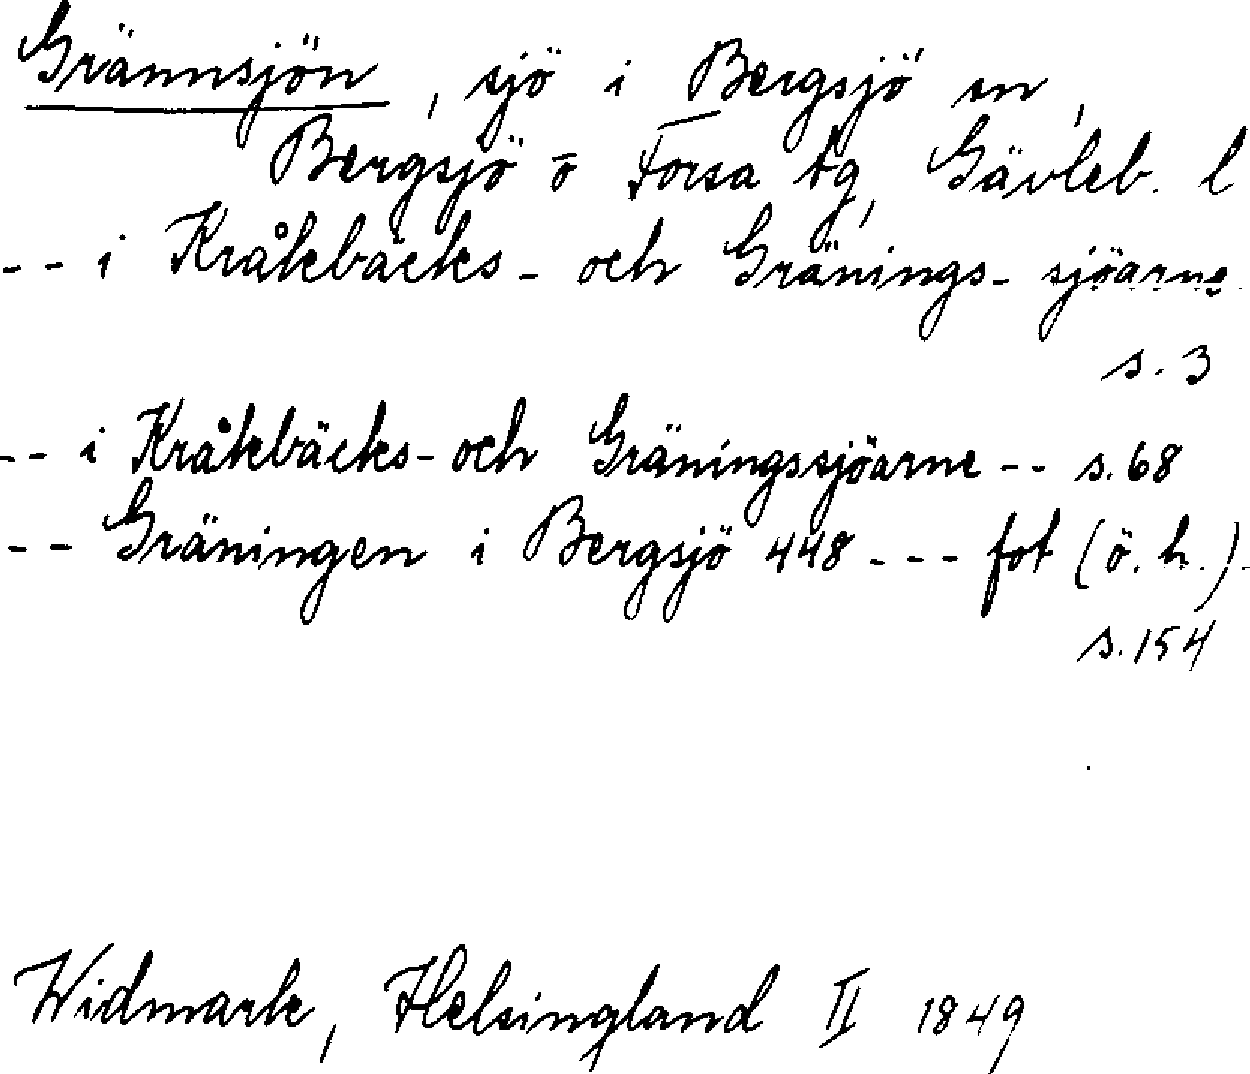 Grännsjön, sjö i Bergsjö sn,
Bergsjö o Forsa tg, Gävleb. l
-- i Kråkbäcks- och Gränings- sjöarne
s. 3
-- i Kråkbäcks- och Gräningssjöarne -- s. 68
-- Gräningen i Bergsjö 448 --- fot (ö. h.)
s. 154
Widmark, Helsingland II 1849